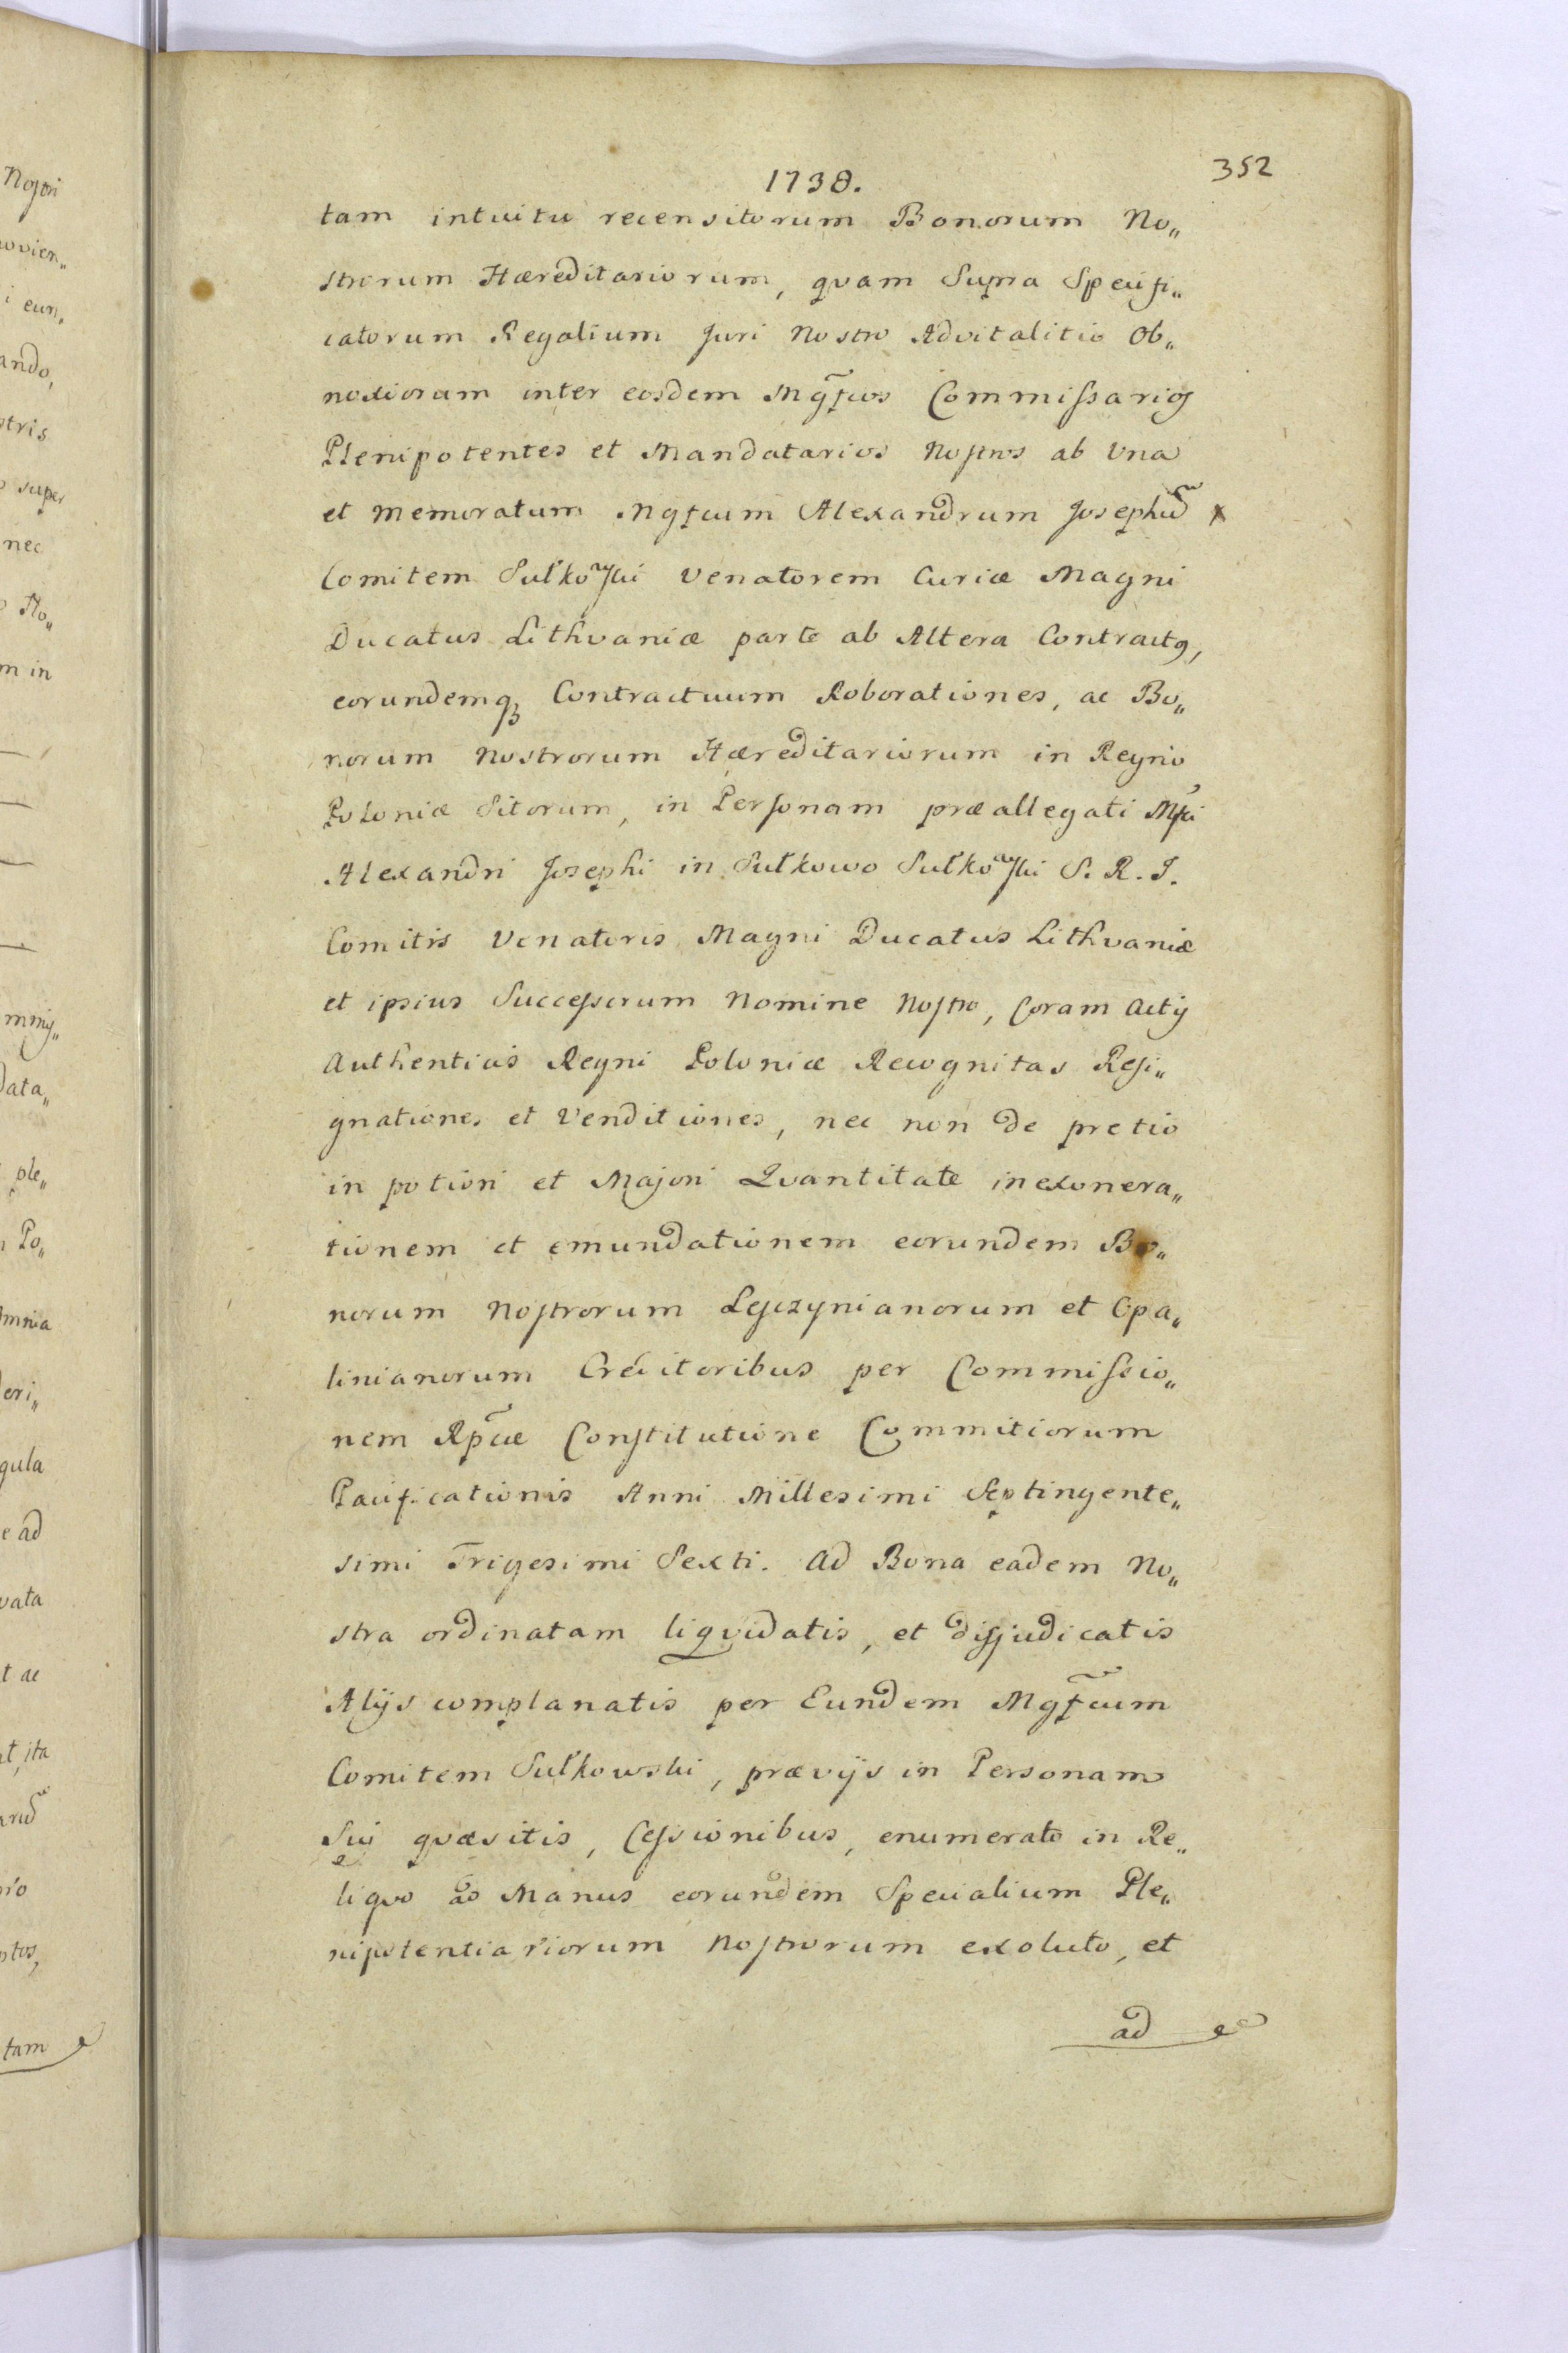 352
1738.
tam intuitu recensitorum Bonorum No„
strorum Hæreditariorum, quam Supra Specifi„
catorum Regalium Juri Nostro Advitalitio Ob„
noxioram inter eosdem Mg̃fcos Commissarios
Plenipotentes et Mandatarios Nostros ab Una
et Memoratum Mgfcum Alexandrum Josephu᷈
Comitem Sułkowski Venatorem Curiæ Magni
Ducatus Lithvaniæ parte ab Altera Contractus,
eorundemq3 Contractuum Roborationes, ac Bo„
norum Nostrorum Hæreditariorum in Regno
Poloniæ Sitorum, in Personam præallegati Mfci
Alexandri Josephi in Sułkowo Sułkowski S. R. I.
Comitis Venatoris Magni Ducatus Lithvaniæ
et ipsius Successorum Nomine Nostro, Coram Actis
Authenticis Regni Poloniæ Recognitas Resi„
gnationes et Venditiones, nec non de pretio
in potiori et Majori Qvantitate inexonera„
tionem et emundationem eorundem Bo„
norum Nostrorum Lesczynianorum et Opa„
linianorum Creditoribus per Commissio„
nem Rp̃cæ Constitutione Commitiorum
Pacificationis Anni Millesimi Septingente„
simi Trigesimi Sexti. Ad Bona eadem No„
stra ordinatam liqvidatis, et disjudicatis
Alijs complanatis per Eundem Mgf̃cum
Comitem Sułkowski, prævijs in Personam
Sui qvæsitis, Cessionibus, enumerato in Re„
liqvo ad Manus eorundem Specialium Ple„
nipotentiariorum Nostrorum exoluto, et
ad